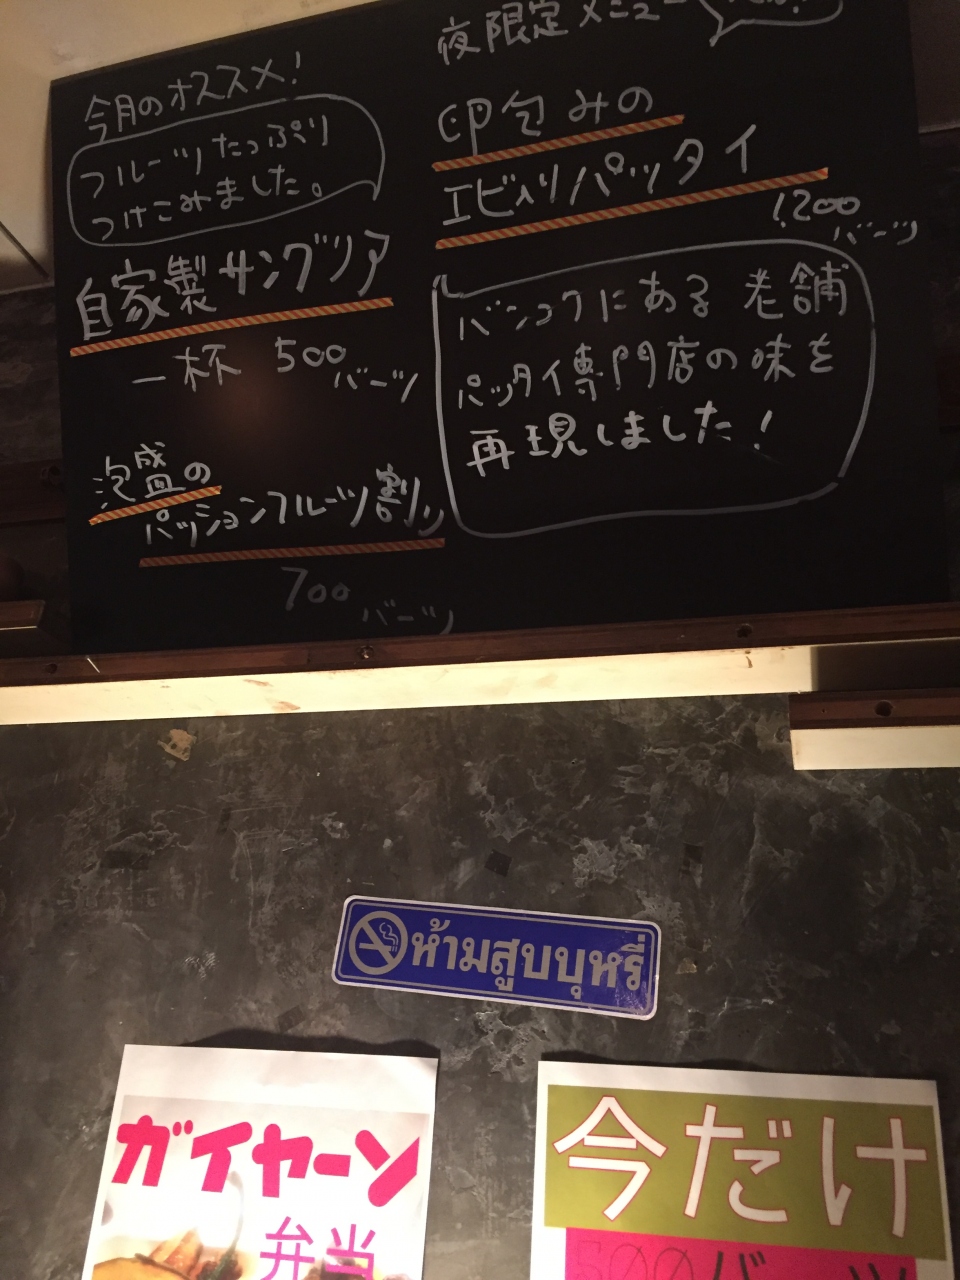 今月のオススメ!
フルーツたっぷり
つけこみました。
自家製サングリア
一杯 500バーツ
泡盛の
パッションフルーツ割り
700
バーツ
夜限定メニュー
卵包みの
エビ入りパッタイ
1200
バーツ
バンコクにある老舗
パッタイ専門店の味を
再現しました!
ห้ามสูบบุหรี่
ガイヤーン
弁当
今だけ
500バーツ